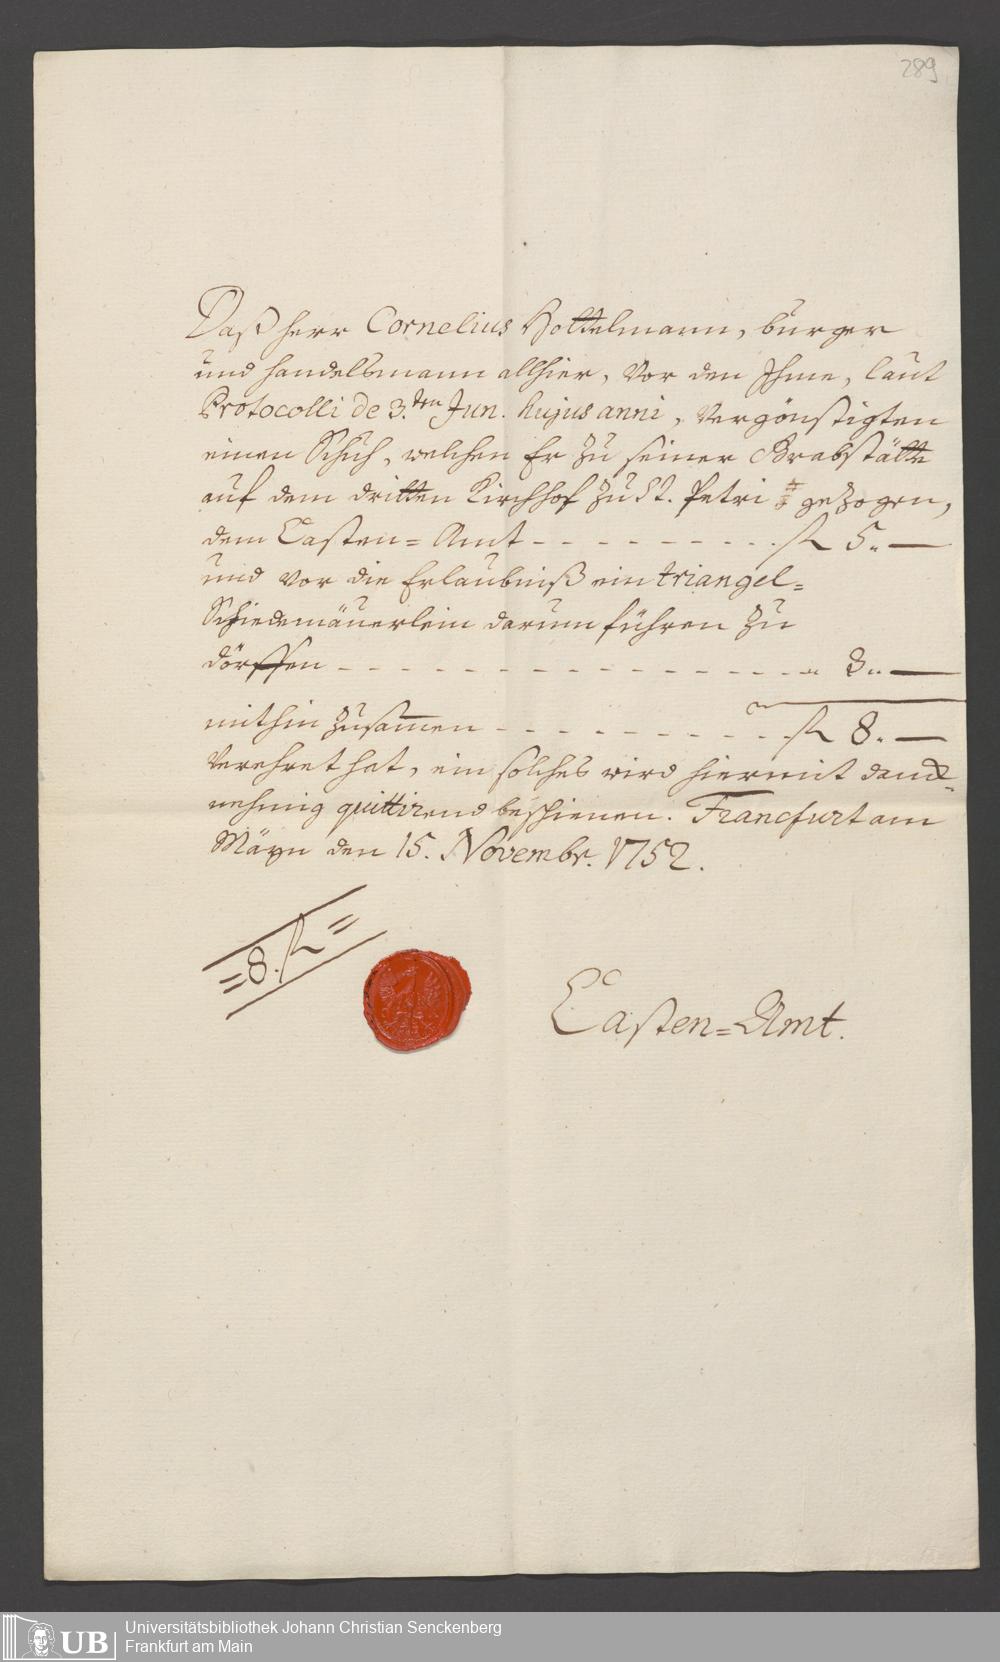 289
Daß Herr Cornelius Hottelmann, burger
und handelsmann allhier, vor den Ihme, laut
Protocolli de 3.ten Jun. hujus anni, vergönstigten
einen Schuh, welchen Er zu seiner Grabstätte
auf dem dritten Kirchhof zu St. Petri gezogen,
dem Casten=Amt - - - - - - - - - - fl 5.. —
und vor die Erlaubniß ein triangel=
Schiedmäuerlein darum führen zu
dörffen - - - - - - - - - - - - - - - - - - „ 3.. —
mithin zusamen - - - - - - - - - - - fl 8. —
verehret hat, ein solches wird hiermit danck=
nehmig quittirend beschienen. Franckfurt am
Mäyn den 15. Novembr. 1752.
=8. fl=
Casten=Amt.
UB
Universitätsbibliothek Johann Christian Senckenberg
Frankfurt am Main